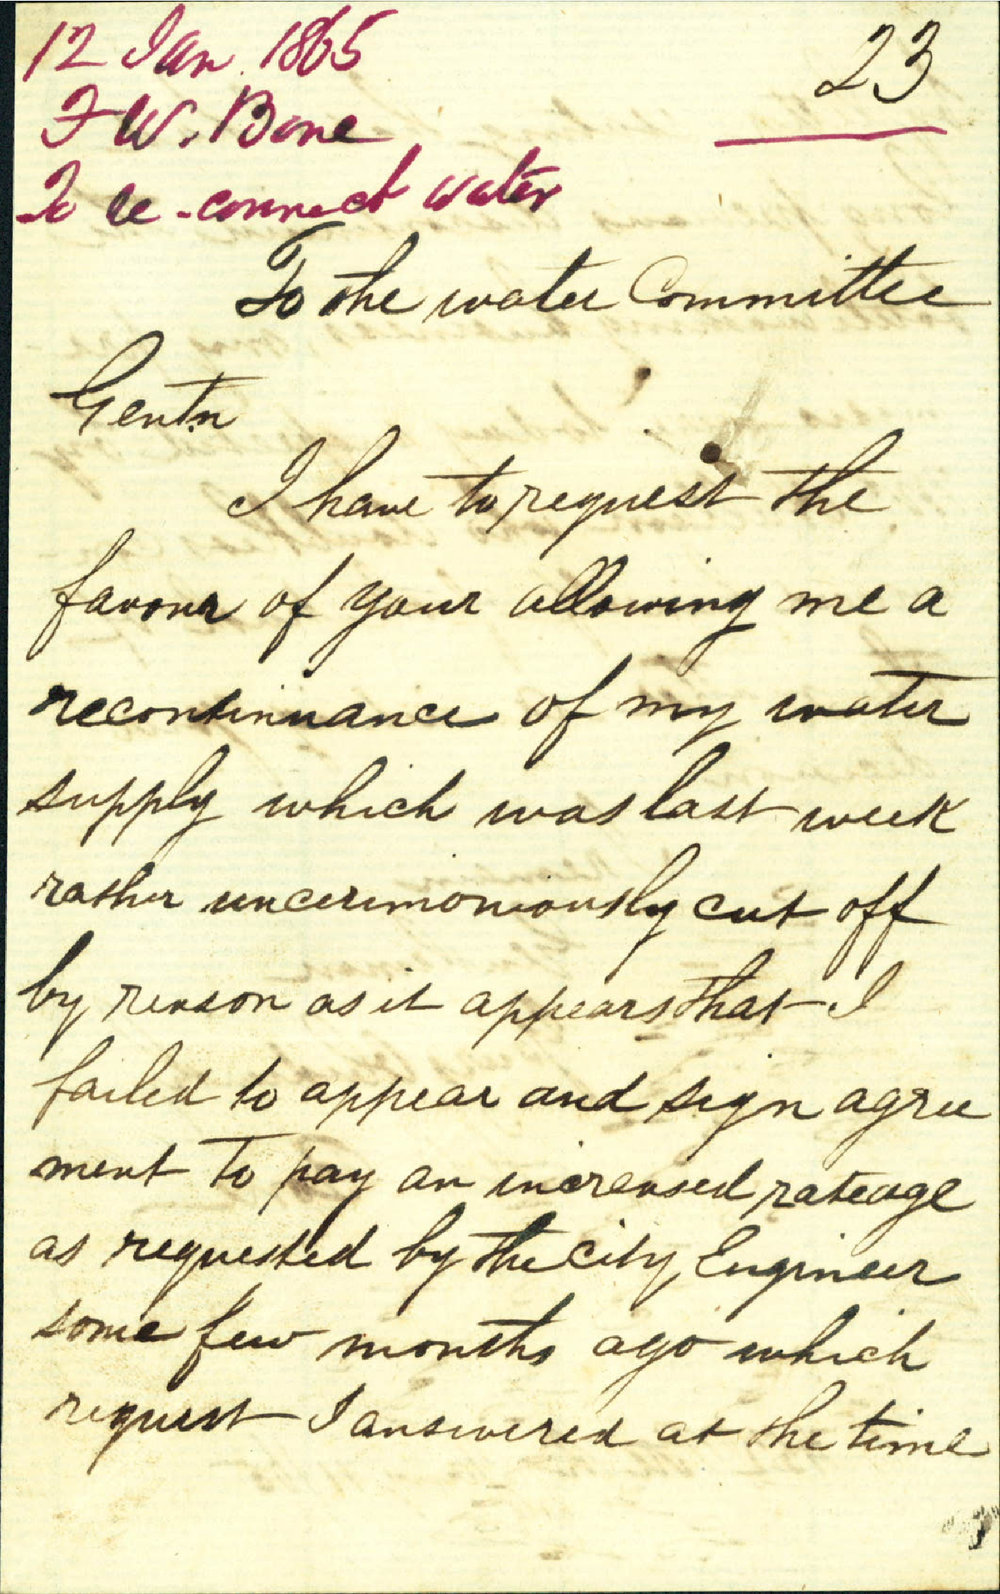 12 Jan. 1865
23
F W. Bone
To re-connect water
To the water Committee
Gentn
I have to request the
favour of your allowing me a
recontinuance of my water
supply which was last week
rather uncerimoniously cut off
by reason as it appears that I
failed to appear and sign agree
ment to pay an increased rateage
as requested by the City Engineer
some few months ago which
request I answered at the time